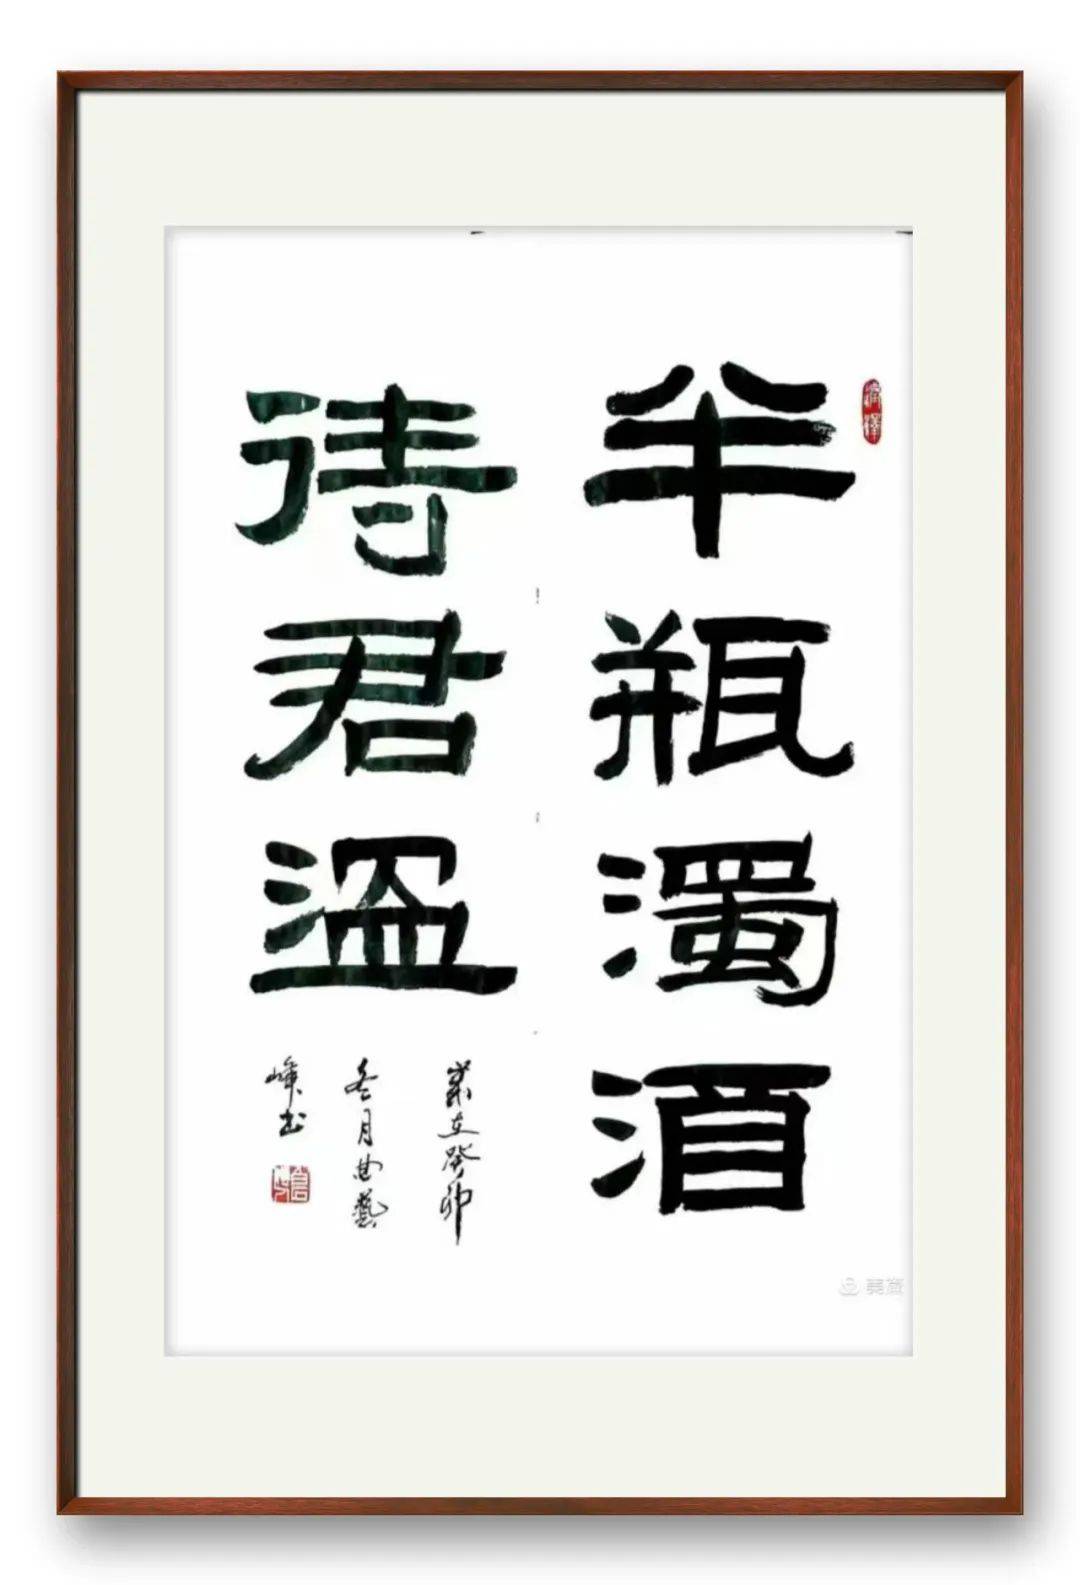 半瓶濁酒
待君温
歲在癸卯
冬月曲藝
峰书
美篇